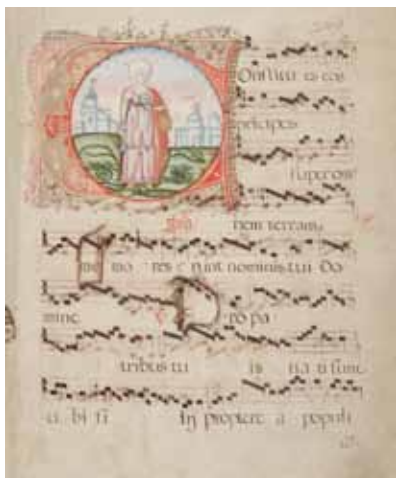 Constitu es eos
principes
super om
nem terram
me mo res e runt nominis tui Do
mine P ro pa
tribus tu is na ti sunt
ti bi fi a populi